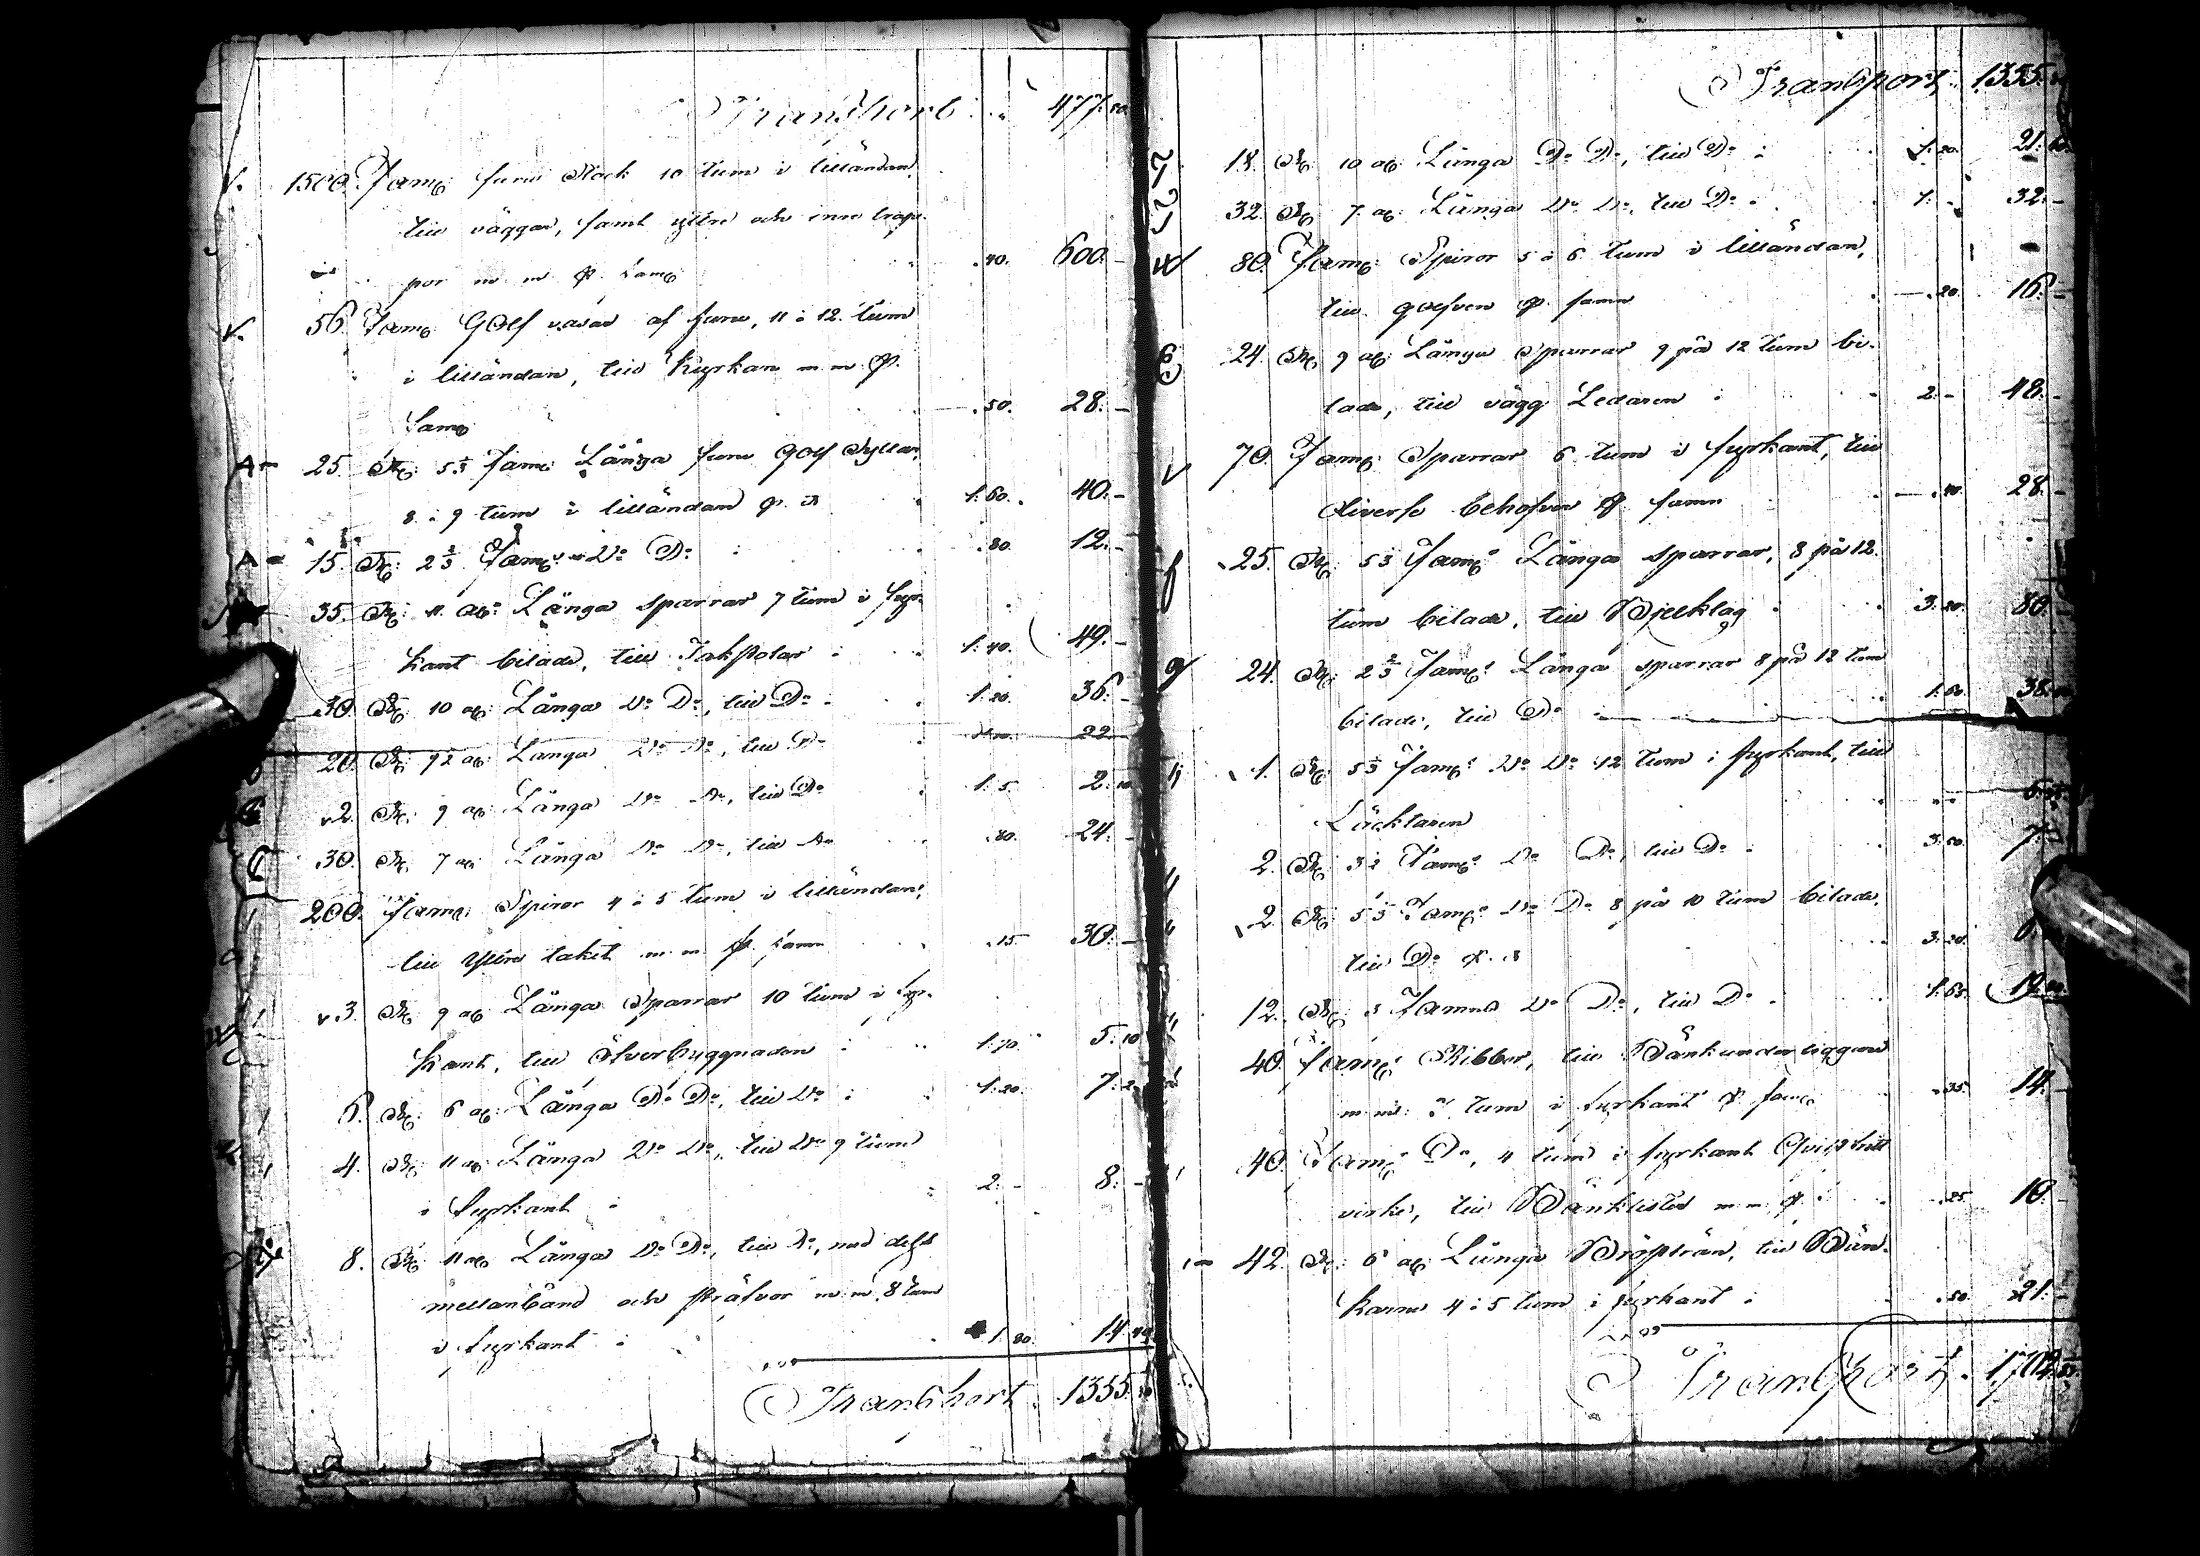 Transport 477.50
1500. Famn: furu Stock 10 tum i lilländan,
till väggar, samt yttre och inre trap-
por m m Pr famn .40. 600. -
56. Famn: Golf vasar af furu, 11 à 12. tum
i lilländan, till Kyrkan m m Pr.
famn .50. 28. -
25. St: 5 1/3 Famn: Långa furu Golf Syllar,
8 à 9 tum i lilländan pr st 1.60. 40. -
15. St: 2 2/3 Famn: Do Do .80. 12. -
35. St: 11 aln: Långa sparrar 7 tum i fyr-
kant bilade, till Takstolar 1.40. 49. -
30. St: 10 aln: Långa Do Do, till Do 1.20. 36. -
20. St: 9 1/2 aln: Långa Do Do, till Do 1.10. 22. -
2. St: 9 aln: Långa Do Do, till Do 1.5. 2.10
30. St: 7 aln: Långa Do Do, till Do .80. 24. -
200. Famn: Spiror 4 à 5 tum i lilländan,
till yttre taket m m pr famn .15 30. -
3. St: 9 aln: Långa Sparrar 10 tum i fyr-
kant, till öfverbyggnaden 1.70. 5.10
6. St: 6 aln: Långa Do Do, till Do 1.20. 7.20
4. St: 11 aln: Långa Do Do, till Do 9 tum
i fyrkant 2. - 8. -
8. St: 11 aln: Långa Do Do, till Do, med dess
mellanbånd och sträfvor m m 8 tum
i fyrkant 1.80. 14.40
Transport 1355.
Transport 1355.
18. St: 10 aln: Långa Do Do, till Do 1.20. 21.60
32. St: 7 aln: Långa Do Do, till Do 1. - 32. -
80. Famn: Spiror 5 à 6 tum i lilländan,
till golfven pr famn .20. 16. -
24. St: 9 aln: Långa Sparrar 9 på 12 tum bi-
lade, till vägg Ledaren 2. - 48. -
70. Famn: Sparrar 6 tum i fyrkant, till
diverse behofver pr famn .40. 28. -
25. St: 5 1/3 Famn: Långa sparrar, 8 på 12.
tum bilade, till Bjelklag 3.20. 80. -
24. St: 2 2/3 Famn: Långa sparrar 8 på 12 tum
bilade, till Do 1.60. 38.40
1. St: 5 1/3 Famn: Do Do 12 tum i fyrkant, till
Läcktaren
2. St: 3 1/2 Famn: Do Do, till Do 3.50. 7. -
2. St: 5 1/3 Famn: Do Do 8 på 10 tum bilade,
till Do pr st 3.20.
12. St: 3 Famnar Do Do, till Do 1.65.
40. Famn: Ribbor, till Bänkunderliggare
m m: 3 tum i fyrkant pr famn .35. 14. -
40. Famn: Do, 4 tum i fyrkant Qvistfritt
virke, till Bänklister m m pr .25. 10. -
42. St: 6 aln: Långa Bröstträn, till Bän-
karne 4 à 5 tum i fyrkant .50. 21. -
Transport